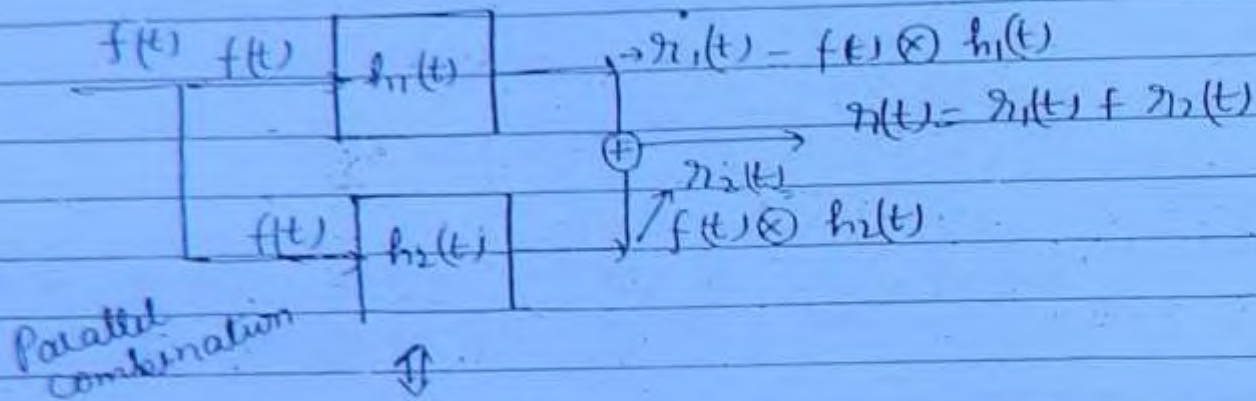 f(t) f(t) h1(t) → r1(t) = f(t) ⊗ h1(t)
r(t) = r1(t) + r2(t)
⊕
r2(t)
f(t) h2(t) f(t) ⊗ h2(t)
Parallel
combination
⇕